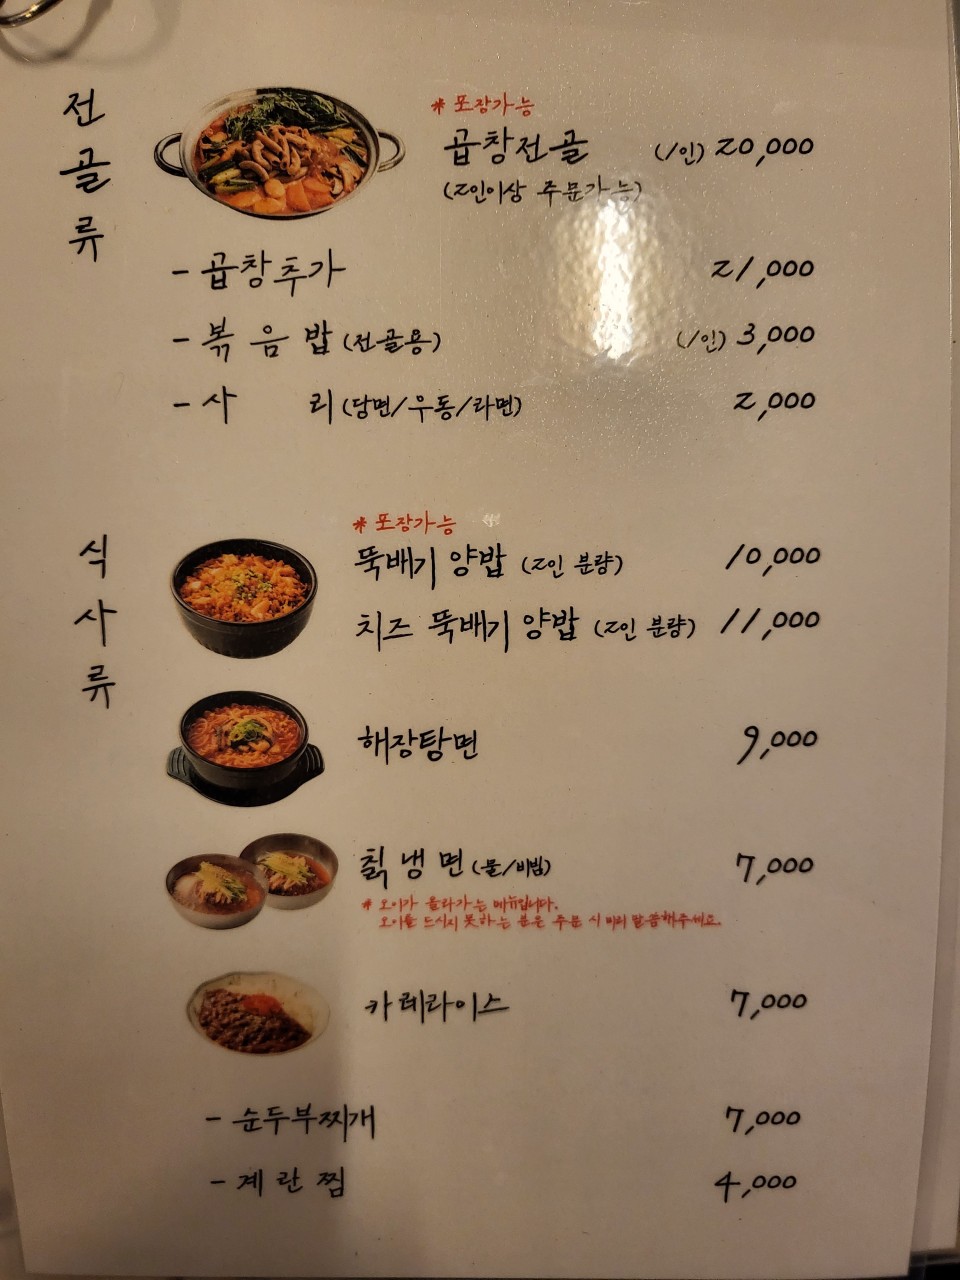 전골류
* 포장가능
곱창전골 (1인) 20,000
(2인이상 주문가능)
- 곱창추가 21,000
- 볶음밥 (전골용) (1인) 3,000
- 사리 (당면/우동/라면) 2,000
식사류
* 포장가능
뚝배기 양밥 (2인 분량) 10,000
치즈 뚝배기 양밥 (2인 분량) 11,000
해장탕면 9,000
칡냉면 (물/비빔) 7,000
* 오이가 올라가는 메뉴입니다.
오이를 드시지 못하는 분은 주문 시 미리 말씀해주세요.
카레라이스 7,000
- 순두부찌개 7,000
- 계란찜 4,000